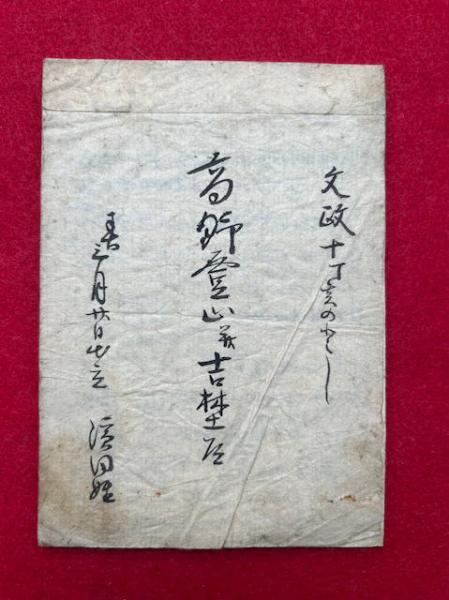 文政十丁亥のとし
高野登山并吉埜道
春三月廿日出立 濱田姓